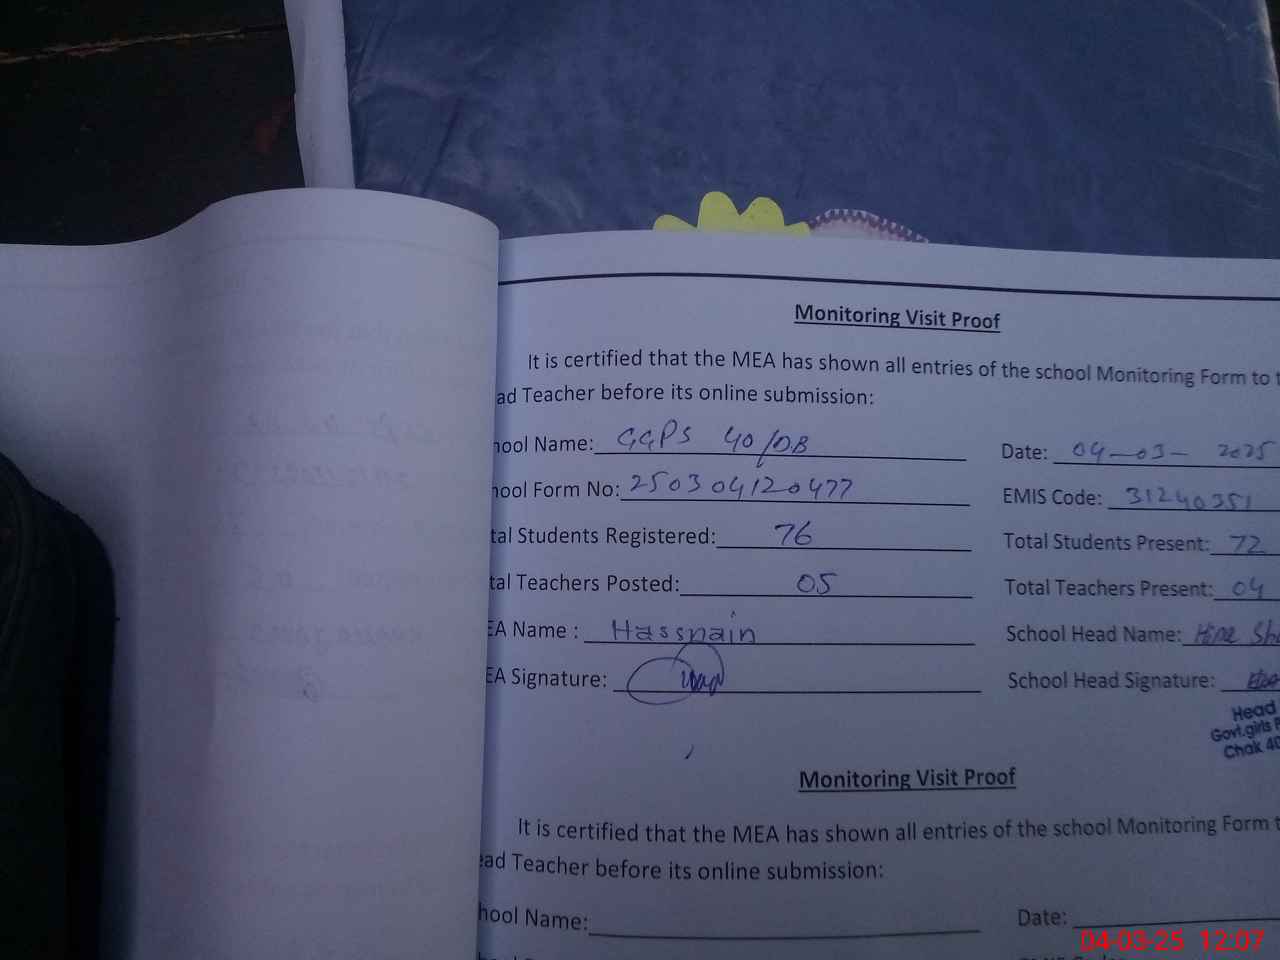 Monitoring Visit Proof
It is certified that the MEA has shown all entries of the school Monitoring Form to t
ad Teacher before its online submission:
ool Name: GGPS 40/DB Date: 04-03-2025
ool Form No: 250304120477 EMIS Code: 31240351
tal Students Registered: 76 Total Students Present: 72
tal Teachers Posted: 05 Total Teachers Present: 04
EA Name : Hassnain School Head Name: Hina Sh
EA Signature: School Head Signature:
Head
Govt.girls P
Chak 40
Monitoring Visit Proof
It is certified that the MEA has shown all entries of the school Monitoring Form t
ead Teacher before its online submission:
hool Name: Date:
04-03-25 12:07